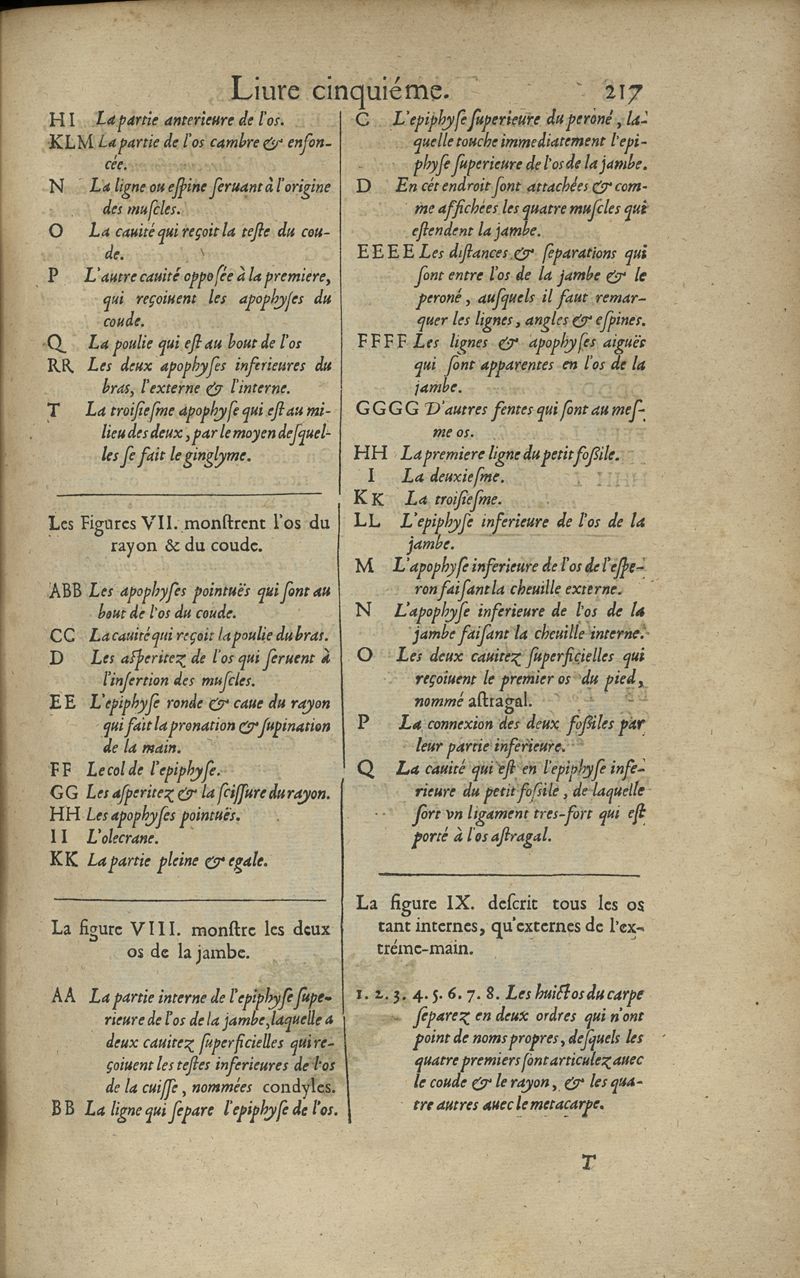 Liure cinquiéme. 217
H I La partie anterieure de l'os.
K L M La partie de l'os cambre & enfon-
cée.
N La ligne ou espine seruant à l'origine
des muscles.
O La cauité qui reçoit la teste du cou-
de.
P L'autre cauité opposée à la premiere,
qui reçoiuent les apophyses du
coude.
Q La poulie qui est au bout de l'os
RR Les deux apophyses inferieures du
bras, l'externe & l'interne.
T La troisiesme apophyse qui est au mi-
lieu des deux, par le moyen desquel-
les se fait le ginglyme.
Les Figures VII. monstrent l'os du
rayon & du coude.
ABB Les apophyses pointuës qui sont au
bout de l'os du coude.
CC La cauité qui reçoit la poulie du bras.
D Les asperitez de l'os qui seruent à
l'insertion des muscles.
EE L'epiphyse ronde & caue du rayon
qui fait la pronation & supination
de la main.
FF Le col de l'epiphyse.
GG Les asperitez & la scissure du rayon.
HH Les apophyses pointuës.
II L'olecrane.
KK La partie pleine & egale.
La figure VIII. monstre les deux
os de la jambe.
AA La partie interne de l'epiphyse supe-
rieure de l'os de la jambe, laquelle a
deux cauitez superficielles qui re-
çoiuent les testes inferieures de l'os
de la cuisse, nommées condyles.
BB La ligne qui separe l'epiphyse de l'os.
C L'epiphyse superieure du peroné, la-
quelle touche immediatement l'epi-
physe superieure de l'os de la jambe.
D En cét endroit sont attachées & com-
me affichées les quatre muscles qui
estendent la jambe.
EEEE Les distances & separations qui
sont entre l'os de la jambe & le
peroné, ausquels il faut remar-
quer les lignes, angles & espines.
FFFF Les lignes & apophyses aiguës
qui sont apparentes en l'os de la
jambe.
GGGG D'autres fentes qui sont au mes-
me os.
HH La premiere ligne du petit fossile.
I La deuxiesme.
KK La troisiesme.
LL L'epiphyse inferieure de l'os de la
jambe.
M L'apophyse inferieure de l'os de l'espe-
ron faisant la cheuille externe.
N L'apophyse inferieure de l'os de la
jambe faisant la cheuille interne.
O Les deux cauitez superficielles qui
reçoiuent le premier os du pied,
nommé astragal.
P La connexion des deux fossiles par
leur partie inferieure.
Q La cauité qui est en l'epiphyse infe-
rieure du petit fossile, de laquelle
sort vn ligament tres-fort qui est
porté à l'os astragal.
La figure IX. descrit tous les os
tant internes, qu'externes de l'ex-
tréme-main.
1. 2. 3. 4. 5. 6. 7. 8. Les huict os du carpe
separez en deux ordres qui n'ont
point de noms propres, desquels les
quatre premiers sont articulez auec
le coude & le rayon, & les qua-
tre autres auec le metacarpe.
T